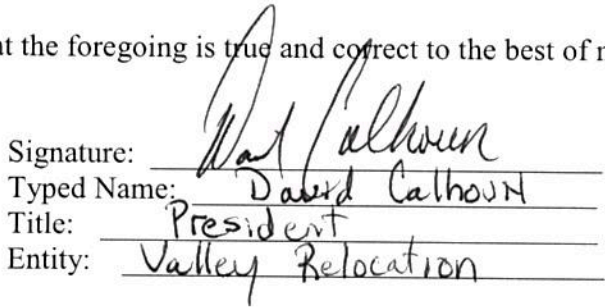 at the foregoing is true and correct to the best of
Signature: Calhoun
Typed Name: David Calhoun
Title: President
Entity: Valley Relocation